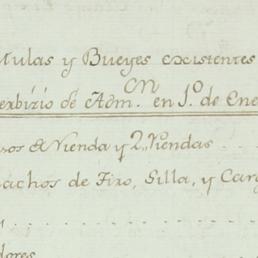 Mulas y Bueyes existentes
erbizio de Adm.on en 1.º de Ene
os de Rienda y 2.as Riendas
achos de Tiro, Silla, y Carg
dores